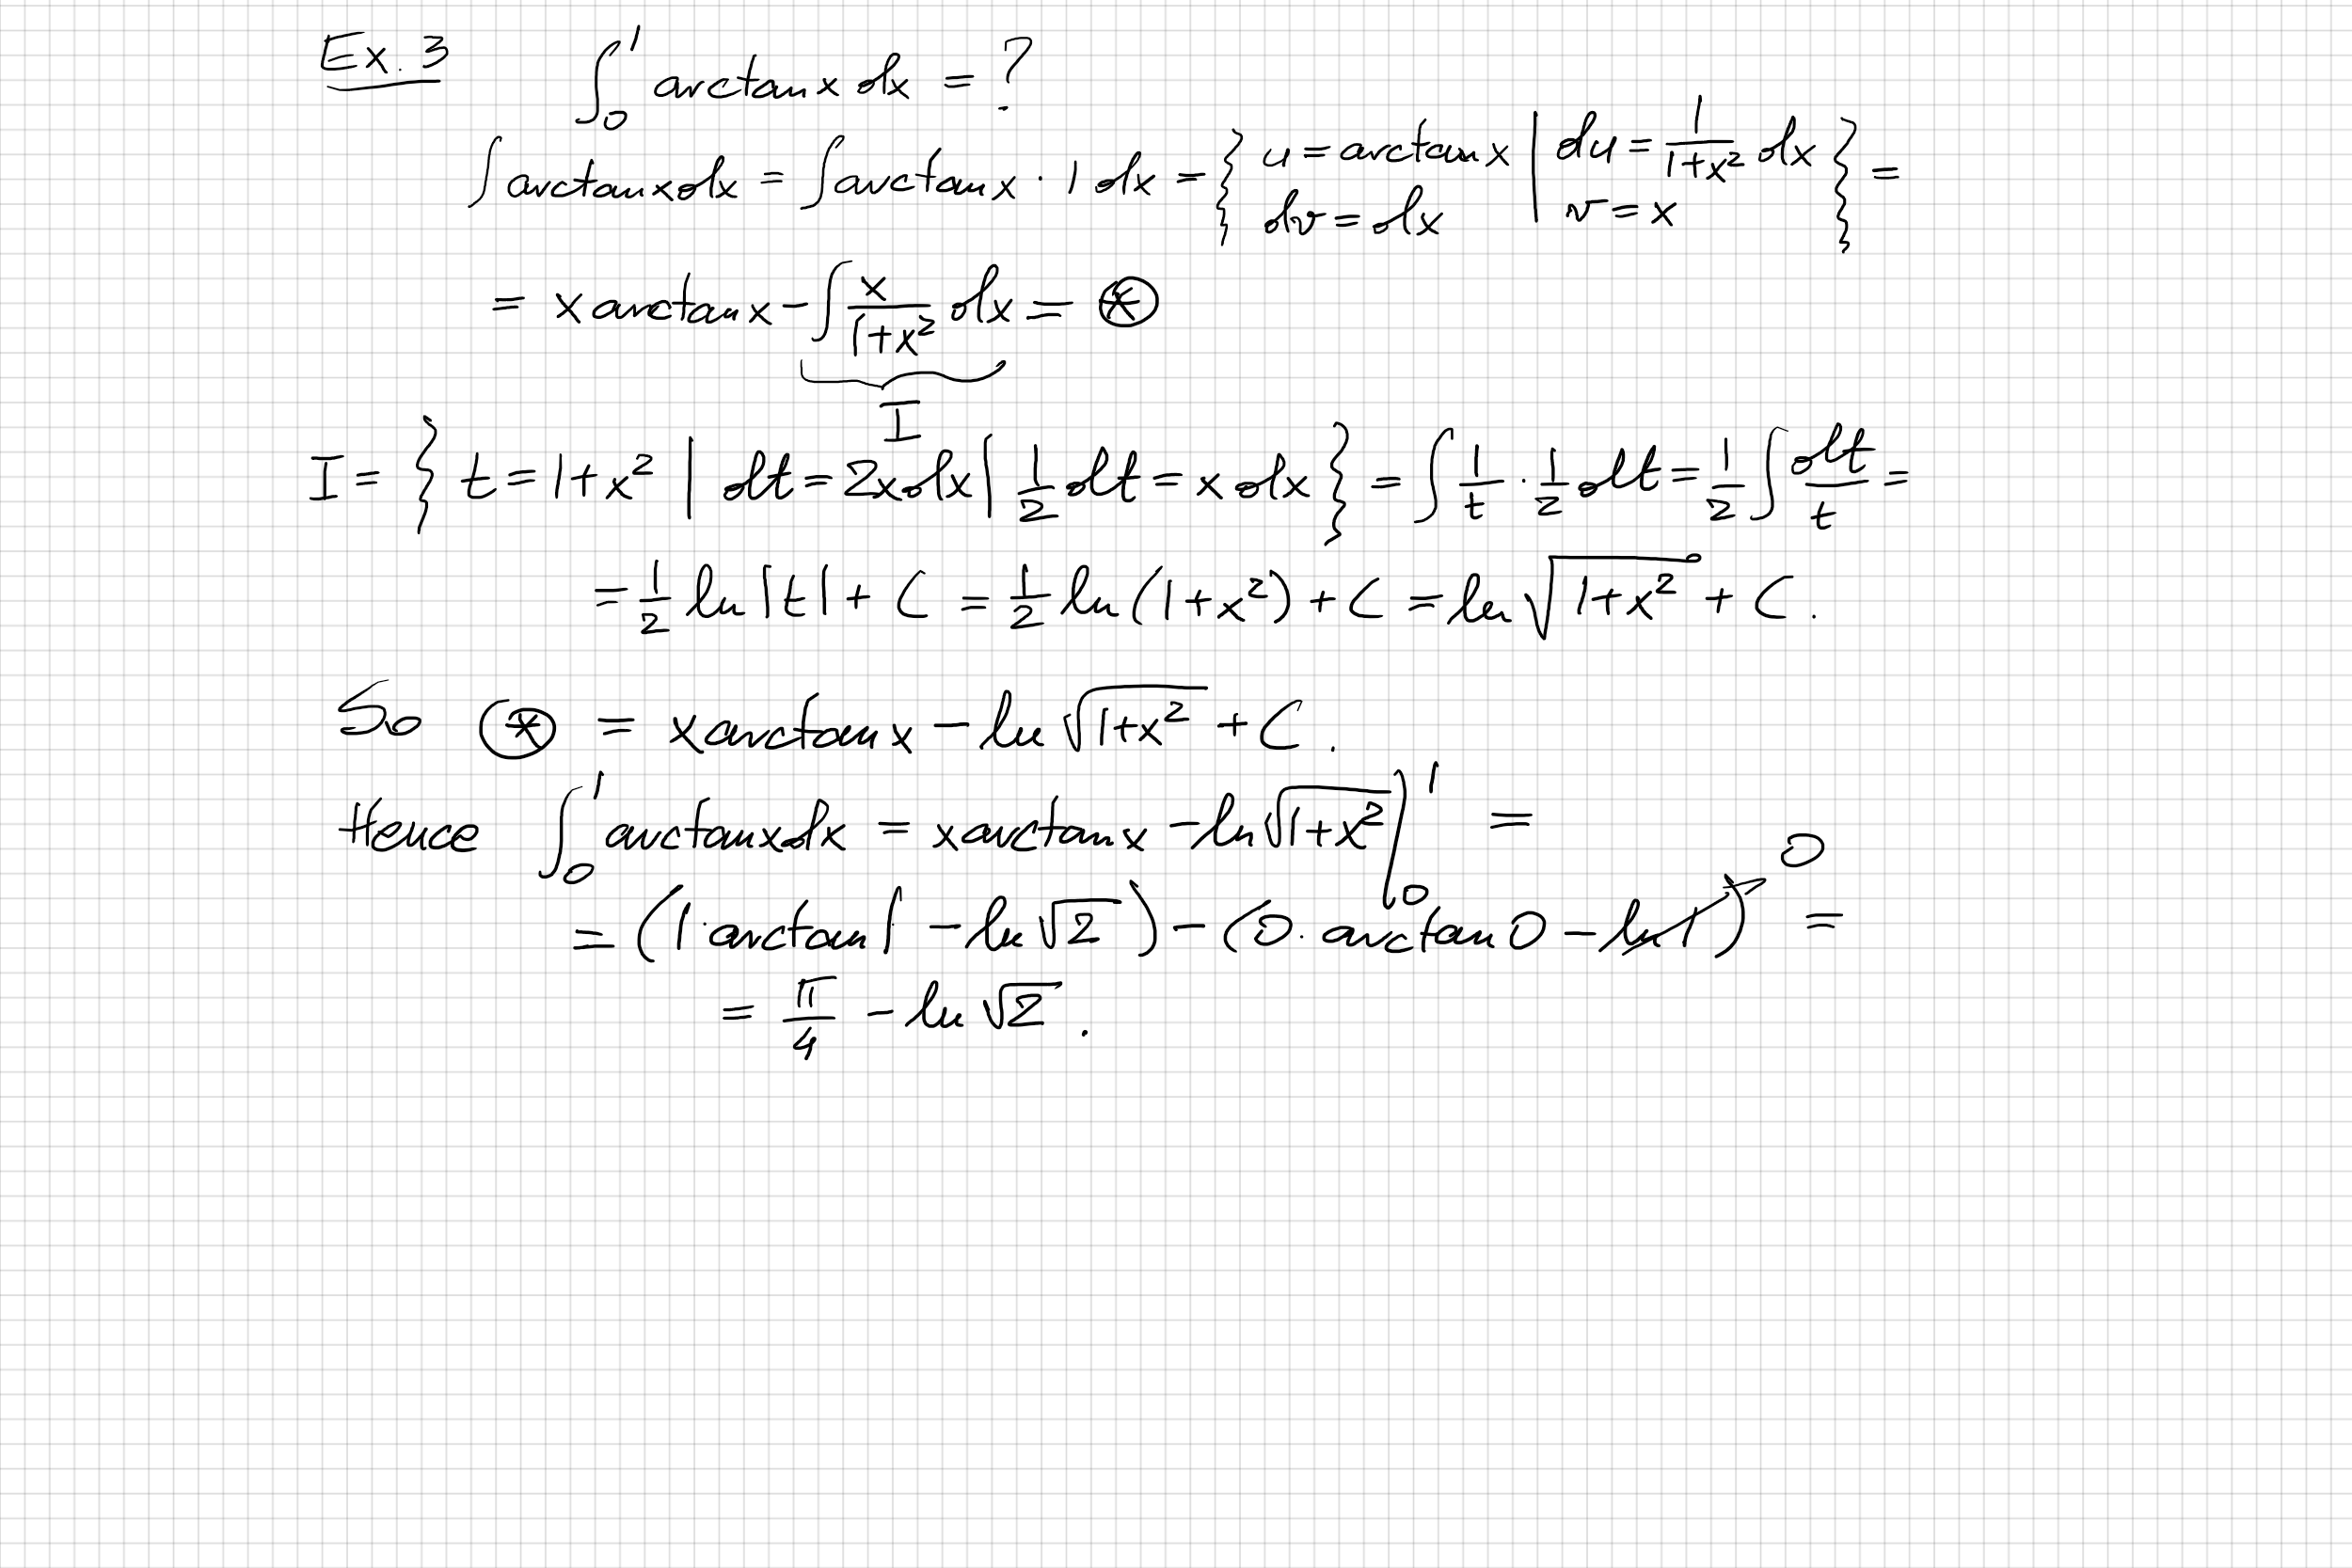 Ex. 3 ∫₀¹ arctan x dx = ?
∫ arctan x dx = ∫ arctan x · 1 dx = { u = arctan x | du = 1/(1+x²) dx
dv = dx | v = x } =
= x arctan x - ∫ x/(1+x²) dx = ⊛
I
I = { t = 1+x² | dt = 2x dx | 1/2 dt = x dx } = ∫ 1/t · 1/2 dt = 1/2 ∫ dt/t =
= 1/2 ln |t| + C = 1/2 ln (1+x²) + C = ln √(1+x²) + C.
So ⊛ = x arctan x - ln √(1+x²) + C.
Hence ∫₀¹ arctan x dx = x arctan x - ln √(1+x²) |₀¹ =
= (1·arctan 1 - ln √2) - (0·arctan 0 - ln 1) 0 =
= π/4 - ln √2.